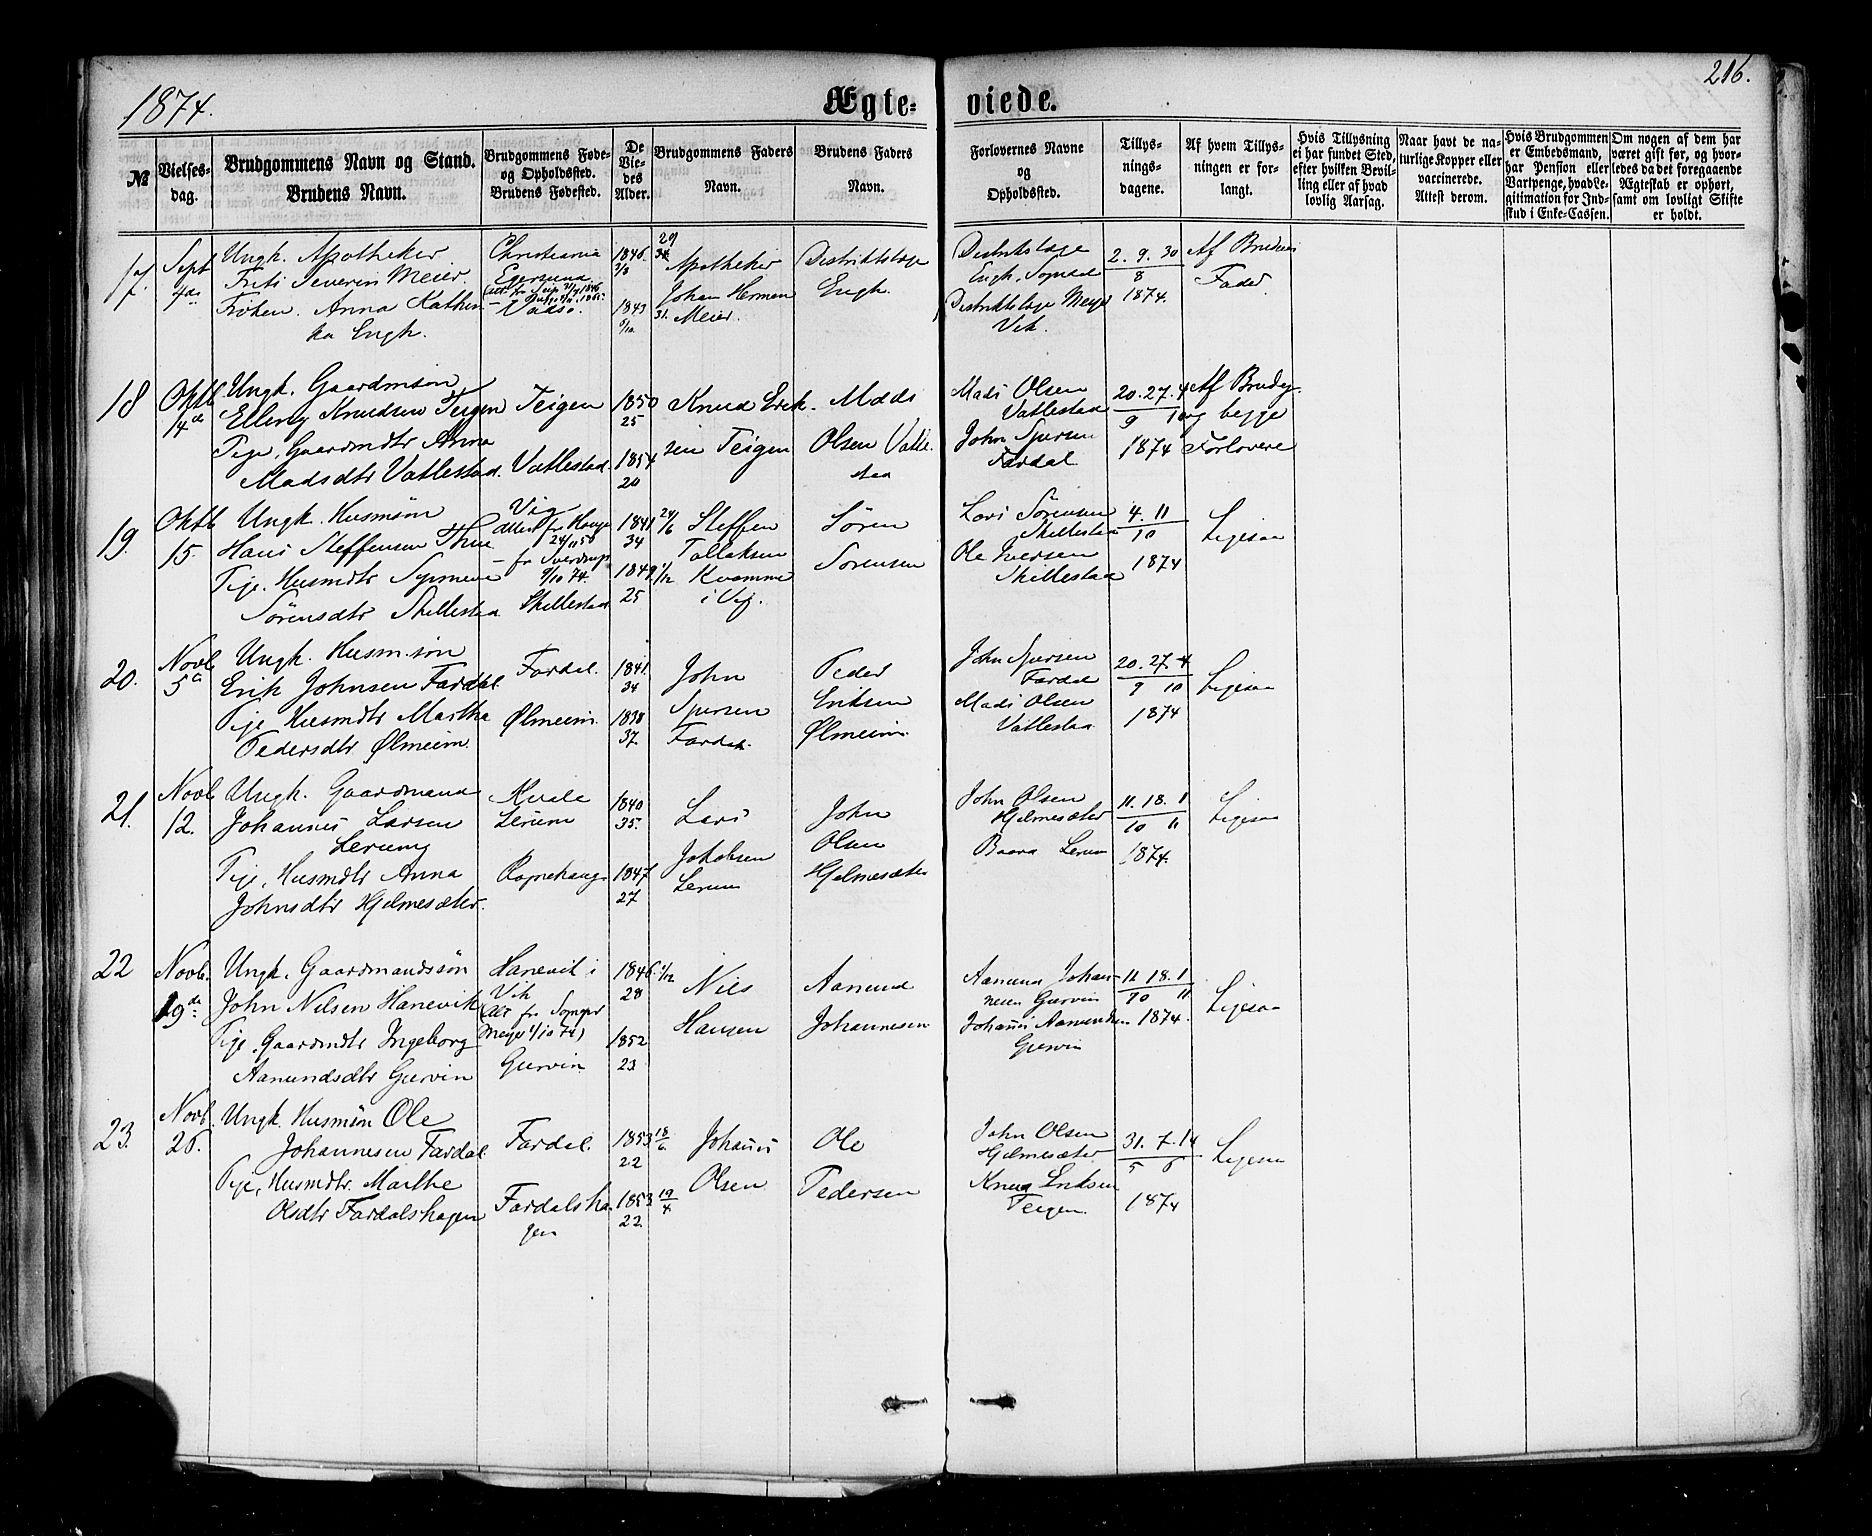 1874.
Ægte-
viede.
216.
№
Vielses-
dag.
Brudgommens Navn og Stand.
Brudens Navn.
Brudgommens Føde-
og Opholdssted.
Brudens Fødested.
De
Vie-
des
Alder.
Brudgommens Faders
Navn.
Brudens Faders
Navn.
Forlovernes Navne
og
Opholdssted.
Tillys-
nings-
dagene.
Af hvem Tillys-
ningen er for-
langt.
Hvis Tillysning
ei har fundet Sted,
efter hvilken Bevil-
ling eller af hvad
lovlig Aarsag.
Naar havt de na-
turlige Kopper eller
vaccinerede.
Attest derom.
Hvis Brudgommen
er Embedsmand,
har Pension eller
Vartpenge, hvad Le-
gitimation for Ind-
skud i Enke-Cassen.
Om nogen af dem har
været gift før, og hvor-
ledes da det foregaaende
Ægteskab er ophørt,
samt om lovligt Skifte
er holdt.
17
Sept
Ungk. Apotheker
Frits Severin Meier
Frøken Anna Kathin
ka Engh.
Christiania
Egersund
Vadsø.
1846
1843
29
31.
Apotheker
Johan Herman
Meier.
Distriktslæge
Engh.
Distriktslæge
Engh, Sogndal
Distriktslæge Meyer
Vik.
2. 9. 30
8
1874.
Af Brudens
Fader.
18
Oktb
14de
Ungk. Gaardmsøn
Elling Knudsen Teigen
Pige, Gaardmdtr Anna
Madsdtr Vatlestad.
Teigen
Vatlestad.
1850
25
1854
20
Knud Erik-
sen Teigen
Mads
Olsen Vatle-
stad
Mads Olsen
Vatlestad
John Sjursen
Fardal
20. 27. 4
9 10
1874
Af Brudg.
og begge
Forlovere
19.
Oktb
15.
Ungk. Husmsøn
Hans Steffensen Thue
Pige. Husmdtr Synneve
Sørensdtr Skillestad
Vig
9/10 74.
Skillestad
1841
34
1849
25
24/6
1/12
Steffen
Tollaksen
Kvamme
i Vig.
Søren
Sørensen
Lars Sørensen
Skillestad
Ole Iversen
Skillestad
4. 11
10
1874
Ligesaa
20.
Novb
5te
Ungk. Husm.søn
Erik Johnsen Fardal
Pige Husmdtr Martha
Pedersdtr Ølmeim.
Fardal.
Ølmeim.
1841.
34
1838
37.
John
Sjursen
Fardal.
Peder
Eriksen
Ølmeim
John Sjursen
Fardal
Mads Olsen
Vatlestad
20. 27. 4
9 10
1874
Ligesaa
21.
Novb
12.
Ungk. Gaardmand
Johannes Larsen
Lerum
Pige, Husmdtr Anna
Johnsdtr Hjelmesæter.
Kvale
Lerum
Rognehaug
1840
35.
1847
27
Lars
Jakobsen
Lerum
John
Olsen
Hjelmesæter
John Olsen
Hjelmesæter
Baard Lerum
11. 18. 1
10 11
1874.
Ligesaa
22
Novb.
19de
Ungk. Gaardmandssøn
John Nilsen Hanevik
Pige. Gaardmdtr Ingeborg
Aamundsdtr Gurvin
Hanevik i
Vik
Gurvin
1846
28
1852
23
1/12
Nils
Hansen
Aamund
Johannesen
Aamund Johan-
nesen Gurvin
Johannes Aamundsen
Gurvin
11. 18. 1
10 11
1874.
Ligesaa
23.
Novb.
26.
Ungk. Husmsøn Ole
Johannesen Fardal
Pige, Husmdtr. Marthe
Olsdtr Fardalshagen
Fardal.
Fardalsha
gen
1853
22
1853
22.
18/6
19/4
Johannes
Olsen
Ole
Pedersen
John Olsen
Hjelmesæter
Knud Eriksen
Teigen.
31. 7. 14
5 6
1874
Ligesaa